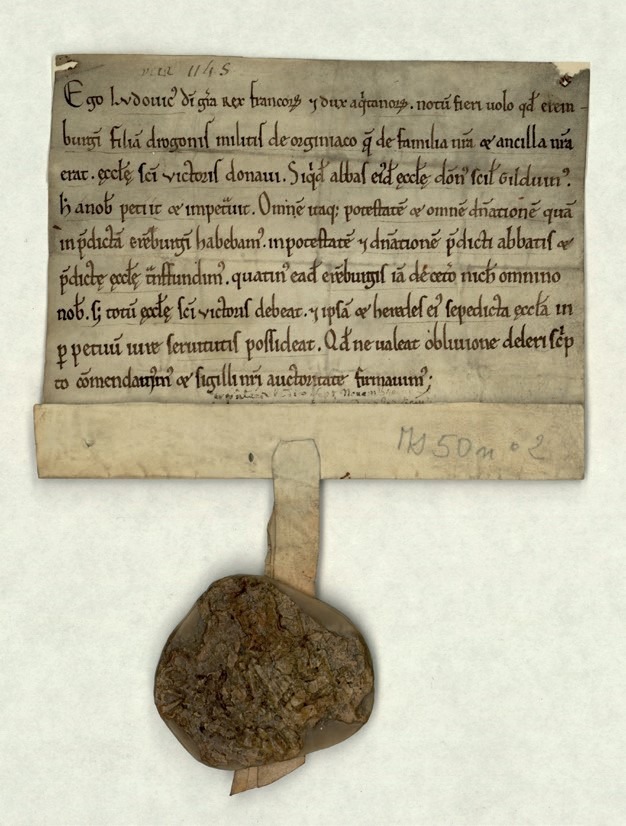 1145
Ego lvdouic' dī gr̄a rex francorꝝ ⁊ dux aq̇tanorꝝ. notū fieri uolo qđ erem-
burgī filiā drogonis militis de orginiaco q̄ de familia nr̄a & ancilla nr̄a
erat. ęccłę sc̄i victoris donaui. Siq̇dē abbas ei'đ ęccłę dōn' scił Gilduin'.
h̄ a nob̄ petiit & impet̄uit. Omnē itaq; potestatē & omnē dn̄ationē quā
in p̄dictā erēburgī habebam'. in potestatē ⁊ dn̄ationē p̄dicti abbatis &
p̄dictę ęccłę t̄nsfundim'. quatin' eađ erēburgis iā de cet̄o nich̄ omnino
nob̄. s; totū ęccłę sc̄i victoris debeat. ⁊ ipsā & heredes ei' sepedicta ęccłā in
ꝑpetuū iure seruitutis possideat. Qđ ne ualeat obliuione deleri sc̄p
to cōmendauim' & sigilli nr̄i auctoritate firmauim';
MS 50 n° 2